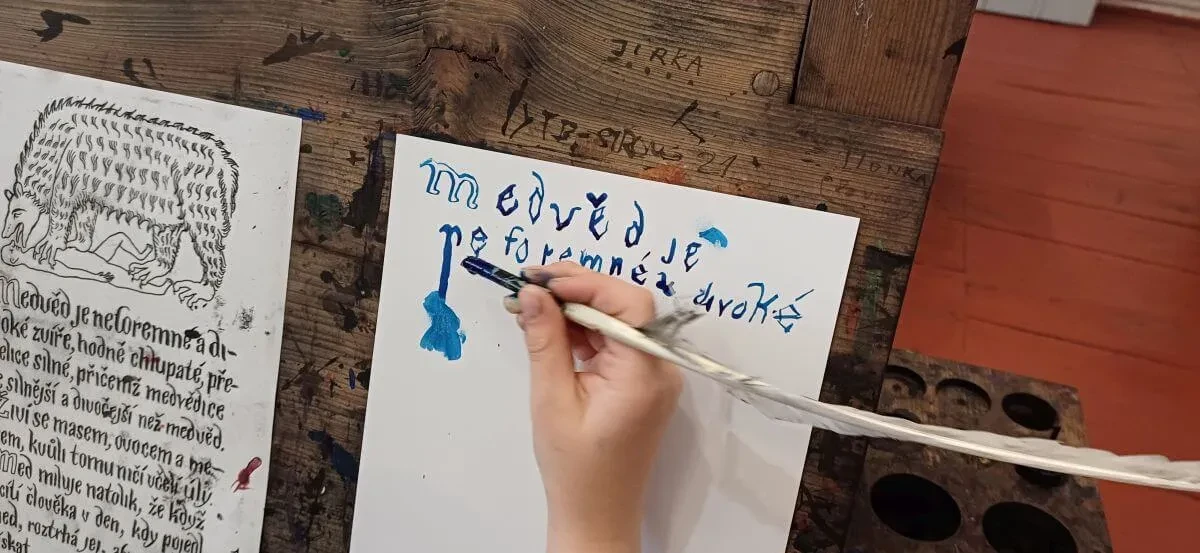 JIRKA
21
ILONKA
Medvěd je neforemné a di-
voké zvíře, hodně chlupaté, pře-
velice silné, přičemž medvědice
silnější a divočejší než medvěd.
Živí se masem, ovocem a me-
dem, kvůli tomu ničí včelí úly.
Med miluje natolik, že když
ucítí člověka v den, kdy pojedl
med, roztrhá jej, aby
získat
Medvěd je
neforemné a divoké